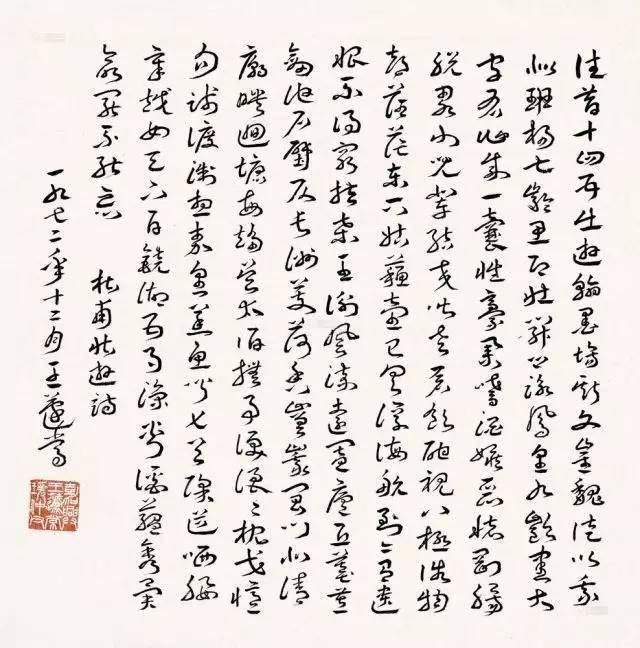 往昔十四五出遊翰墨場斯文崔魏徒以我
似班揚七齡思即壯開口詠鳳皇九齡書大
字有作成一囊性豪業嗜酒嫉惡懷剛腸
脫畧小時輩結交皆老蒼飲酣視八極俗物
都茫茫東下姑蘇臺已具浮海航到今有遺
恨不得窮扶桑王謝風流遠闔廬丘墓荒
劍池石壁仄長洲芰荷香嵯峨閶門北清
廟映迴塘每趨吳太伯撫事淚浪浪枕戈憶
勾踐渡浙想秦皇蒸魚聞匕首除道哂要
章越女天下白鏡湖五月涼剡溪蘊秀異
欲罷不能忘 杜甫壯遊詩
一九七二年十二月王蘧常